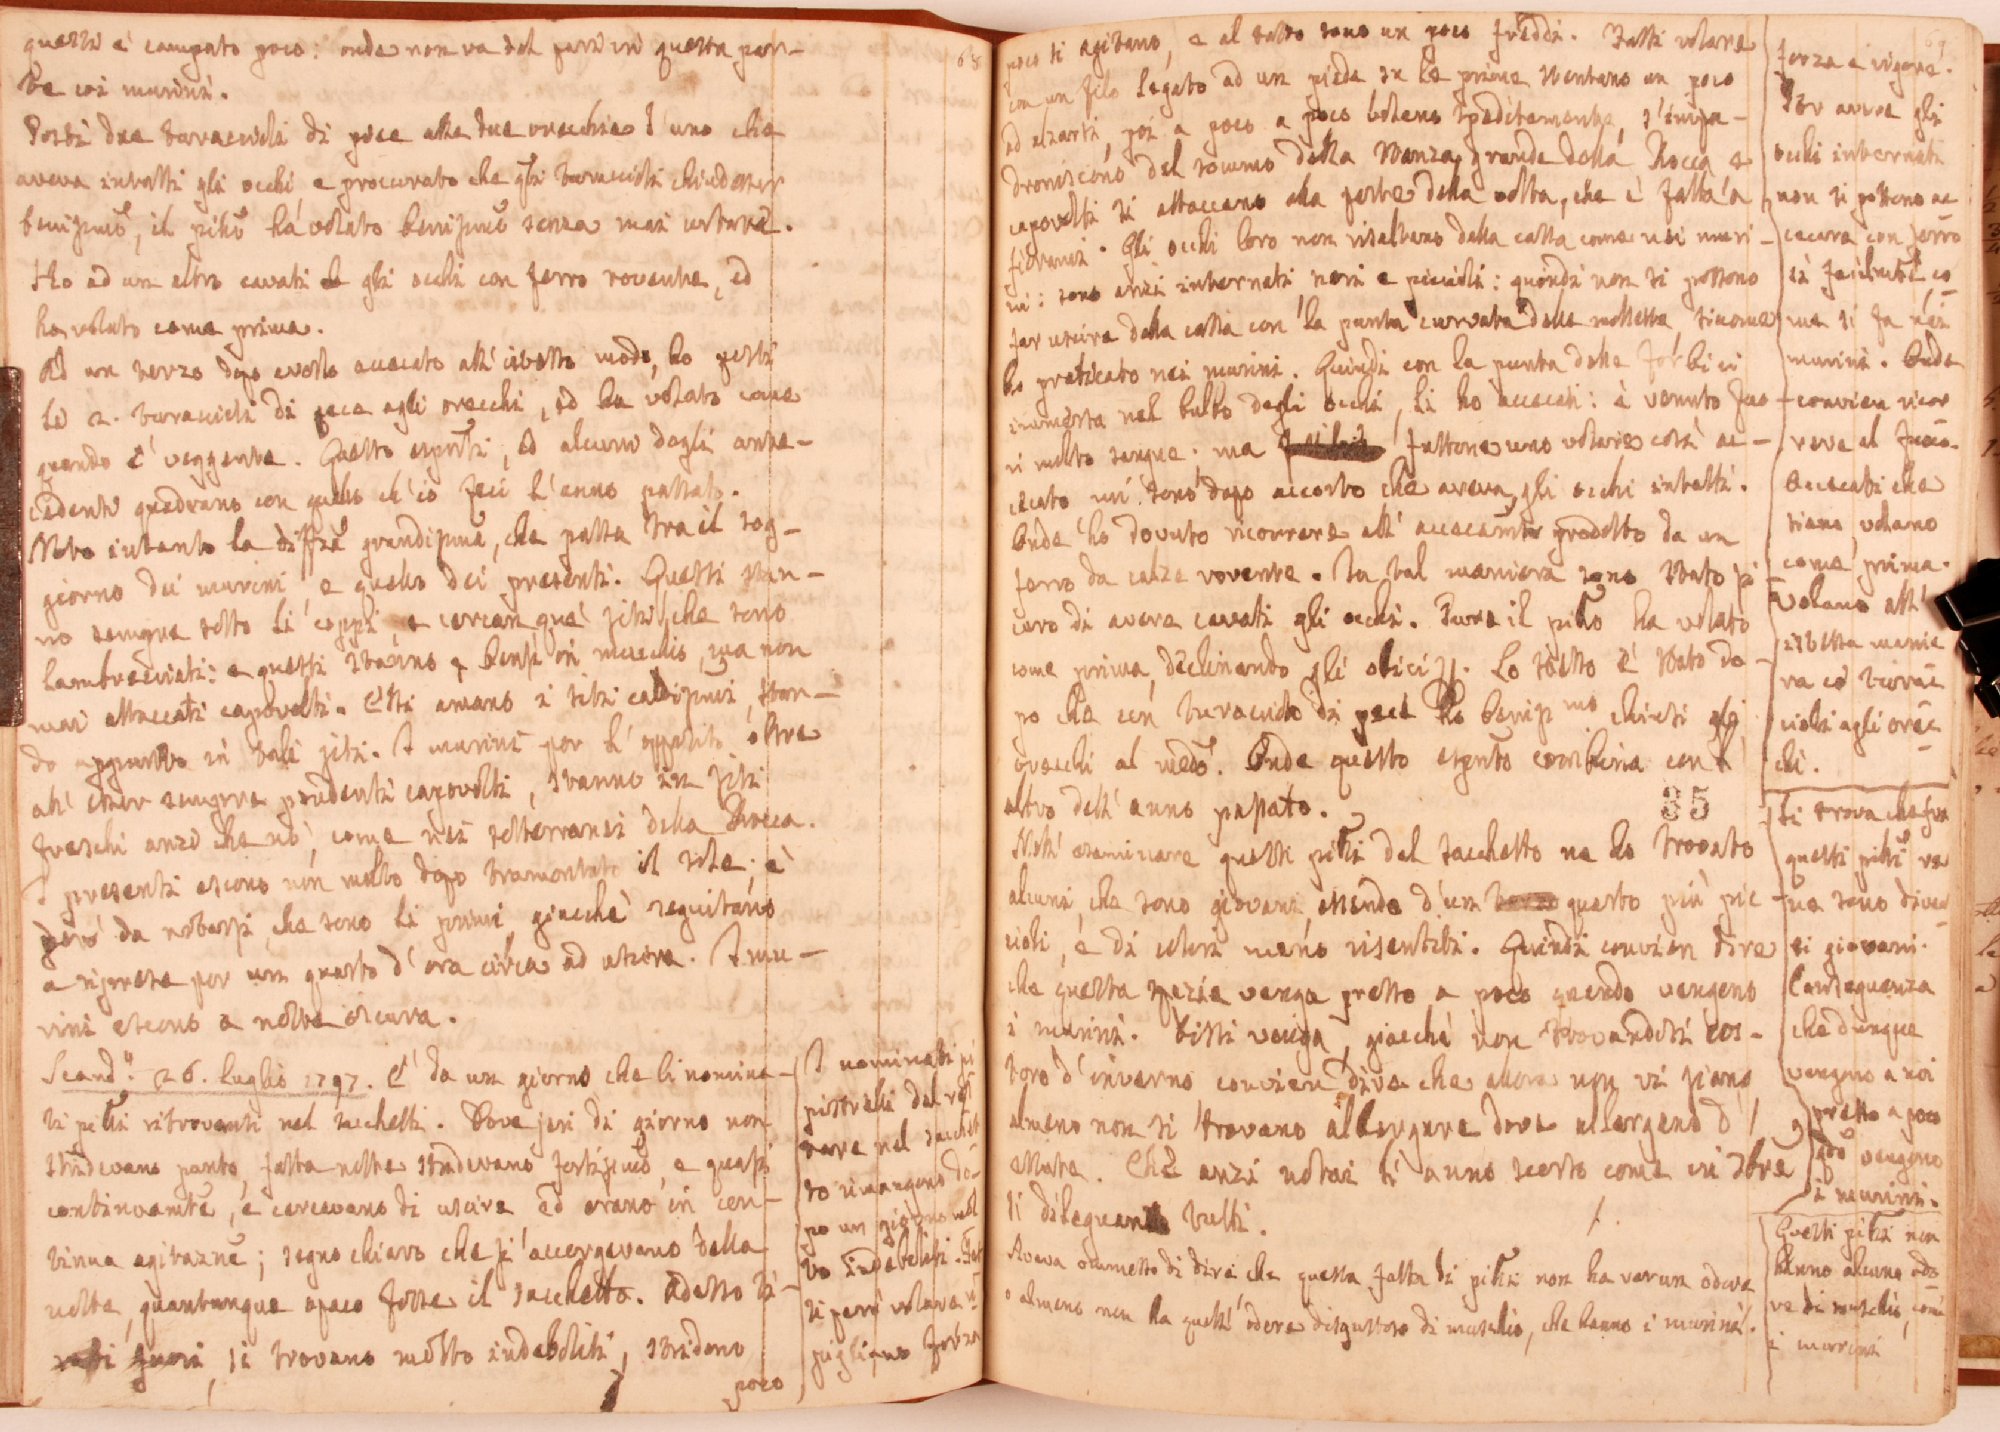 questi è campato poco: onde non va del pari in questa par-
te coi murini.
Posti due turaccioli di pece alle due orecchie d'uno che
aveva intatti gli occhi, e proccurato che gli turaccioli chiudesser
benissimo, il pilio ha volato benissimo senza mai urtare.
Ho ad un altro cavati gli occhi con ferro rovente, ed
ha volato come prima.
Ad un terzo dopo averlo accecato all'istesso modo, ho posti
li 2. turaccioli di pece agli orecchi, ed ha volato come
quando è veggente. Questo , ed alcuni degli ante-
cedenti quadrano con quello ch'io feci l'anno passato.
Noto intanto la grandissima, che passa tra il sog-
giorno dei murini e quello dei presenti. Questi stan-
no sempre sotto li coppi, e cercan que' siti che sono
lambrecciati: e questi stanno in mucchio, ma non
mai attaccati capovolti. Essi amano i siti caldissimi, stan-
do appunto in tali siti. I murini per l'opposito oltre
all'esser sempre pendenti capovolti, stanno in siti
freschi anzi che nò, come nei sotterranei della Rocca.
I presenti escono non molto dopo tramontato il sole; e
però da notarsi che sono li primi, giacchè seguitano
a riprese per un quarto d'ora circa ad uscire. I mu-
rini escono a notte oscura.
Scand.° 26. luglio 1797. È da un giorno che li nomina-
ti ritrovanti nel sacchetti. Dove jeri di giorno non
stridevano punto, fatta notte stridevano fortissimo, e quasi
continuamte, e cercavano di uscire ed erano in con-
tinua agitazne; segno chiaro che si accorgevano della
notte, quantunque opaco fosse il sacchetto. Adesso ti-
rati fuori, si trovano molto indeboliti, stridono
poco
I nominati pi
pistrelli dal re-
stare nel sacchet
to rimangono do-
po un giorno mol
to indeboliti. 
si però volare 
pigliano forza
68
poco si agitano, e al tatto sono un poco freddi. Fatti volare
con un filo legato ad un piede su le prime stentano un poco
ad alzarsi, poi a poco a poco volano speditamente, s'impa-
droniscono del sommo della stanza grande della Rocca e
capovolti si attaccano alla parte della volta, che è fatta a
. Gli occhi loro non risaltano dalla cassa come nei muri-
ni: sono anzi internati neri e piccioli: quindi non si possono
far uscire dalla cassa con la punta curvata delle mollette, siccome
ho praticato nei murini. Quindi con la punta delle forbici
immersa nel bulbo degli occhi, li ho accecati: è venuto fuo-
ri molto sangue. ma fattone uno volare così ac-
cecato mi sono dopo accorto che aveva gli occhi intatti.
Onde ho dovuto ricorrere all'accecamto prodotto da un
ferro da calze rovente. In tal maniera sono stato si
curo di avere cavati gli occhi. Pure il ha volato
come prima, declinando gli . Lo stesso è stato do-
po che con turaccioli di pece ho benissmo chiusi gli
orecchi al medo. Onde questo espnto combina con l'
altro dell'anno passato.
35
Nell'esaminare questi del sacchetto ne ho trovato
alcuni, che sono giovani, essendo d'un quarto più pic-
cioli, e di colori meno risentiti. Quindi convien dire
che questa spezie venga presso a poco quando vengono
i murini. Dissi venga, giacchè non trovandosi cos-
toro d'inverno convien dire che allora non vi siano,
almeno non si trovano albergare dove albergano d'
estate. Che anzi notai l'anno scorso come in 
si dileguan tutti.
Aveva ommesso di dire che questa fatta di non ha verun odore
o almeno non ha quell'odore disgustoso di muschio, che hanno i murini.
69
forza e vigore.
Per aver gli
occhi internati
non si possono ac
cecare con ferro
sì facilmte co-
me si fa nei
murini. Onde
convien ricor
rere al fuoco.
Accecati che
siano volano
come prima.
Volano all'
istessa manie
ra co' turac
cioli agli orec
chi.
Si trova che fra
questi ve
ne sono diver
si giovani.
Conseguenza
che dunque
vengono a noi
presso a poco
qdo vengono
i murini.
Questi non
hanno alcuno odo
re di muschio, come
i murini